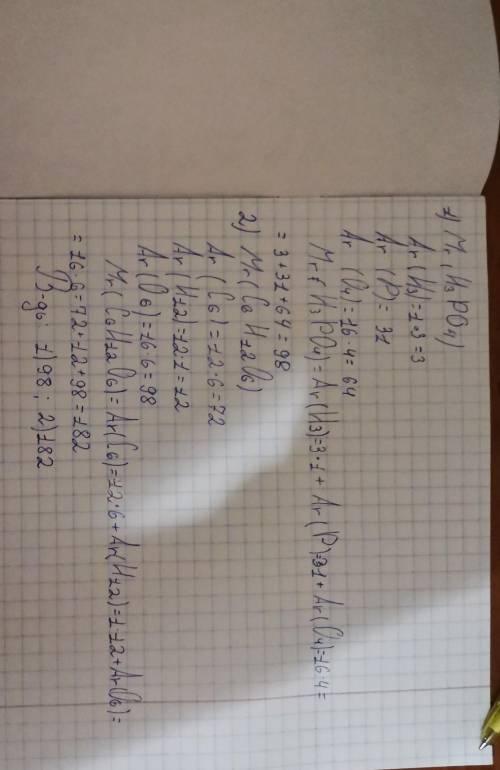 1) Mr(H3PO4)
Ar(H3)=1·3=3
Ar(P)=31
Ar(O4)=16·4=64
Mr(H3PO4)=Ar(H3)=3·1+Ar(P)=31+Ar(O4)=16·4=
=3+31+64=98
2) Mr(C6H12O6)
Ar(C6)=12·6=72
Ar(H12)=12·1=12
Ar(O6)=16·6=98
Mr(C6H12O6)=Ar(C6)=12·6+Ar(H12)=1·12+Ar(O6)=
=16·6=72+12+98=182
1)98; 2)182